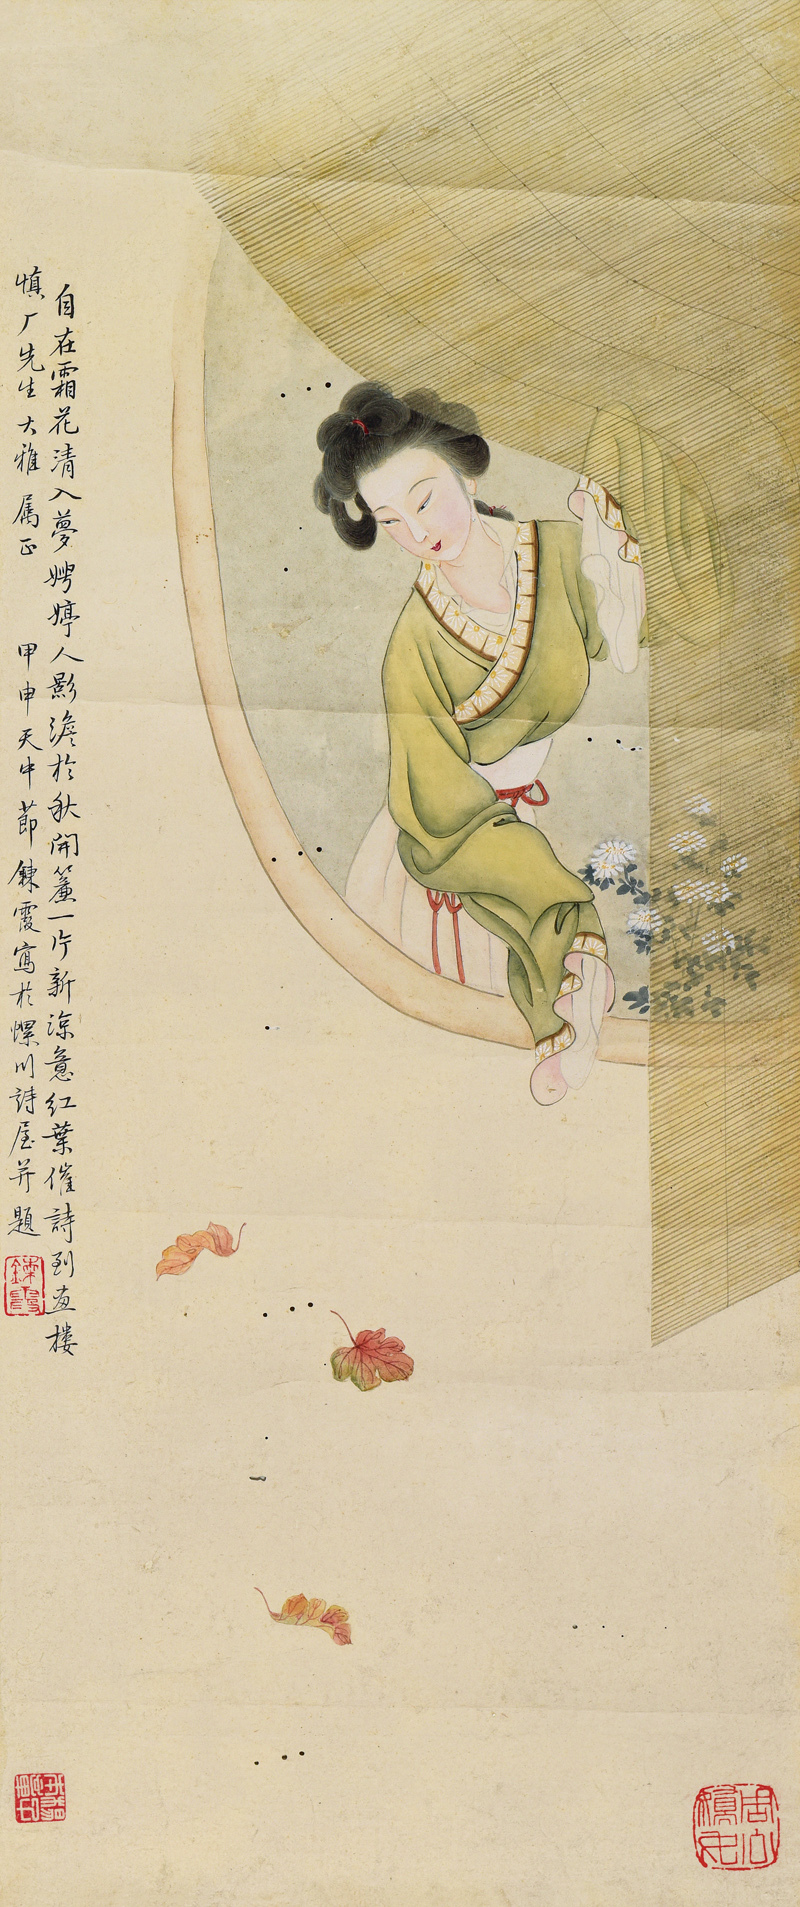 自在霜花清入夢娉婷人影澹於秋開簾一片新涼意紅葉催詩到畫樓
慎厂先生大雅屬正 甲申天中節鍊霞寫於螺川詩屋并題
鍊霞